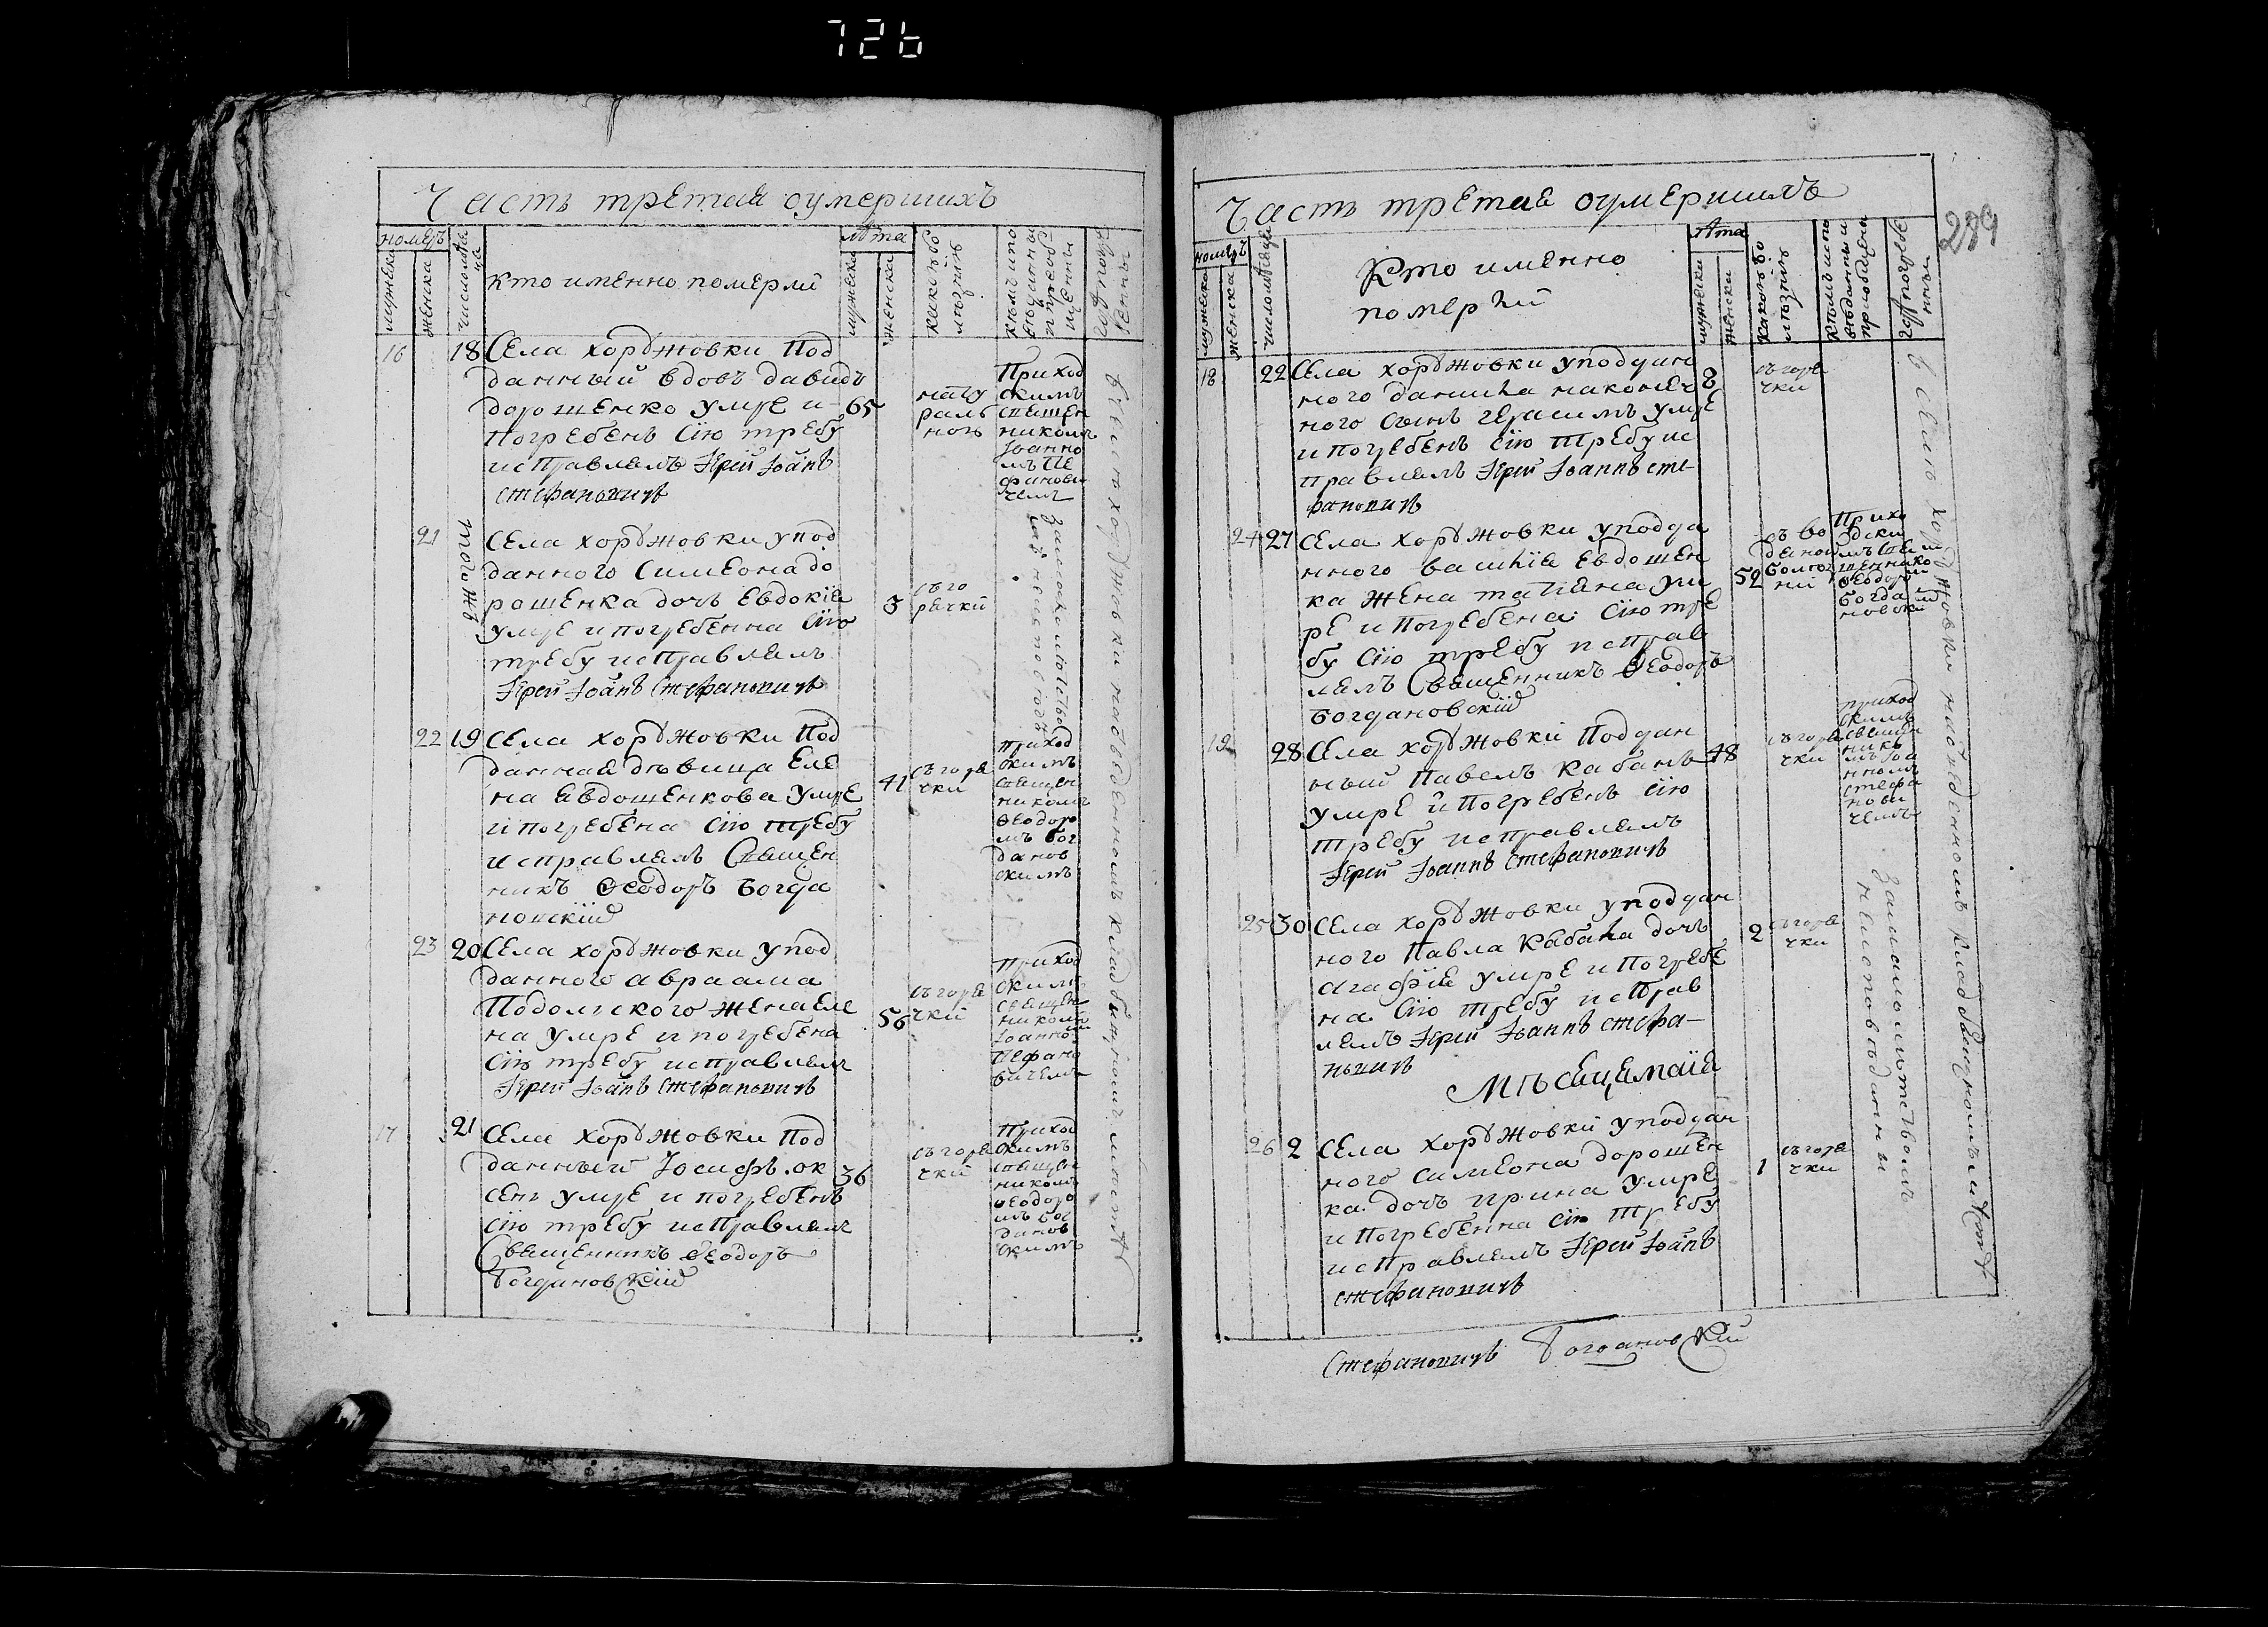 726
Часть третая оумершихъ
номеръ
мужеска
женска
число меся
ца
кто именно померли
лѣта
мужеска
женска
какою бо
лѣзнію
кѣмъ испо
вѣданы
и приоб
щенны
где погре
бенны
16
18
Села хорджовки под
данный вдовъ давидъ
дорошенко умре и
погребенъ сію требу
исправлялъ Іерей Іоаннъ
стефановичъ
65
нату
раль
ною
Приход
скимъ
священ
никомъ
Іоанно
мъ сте
фанови
чемъ
21
того жъ
Села хорджовки упод
данного Симеона до
рошенка дочь Евдокія
умре и погребенна сію
требу исправлялъ
Іерей Іоаннъ Стефановичъ
3
съ го
рячки
22
19
Села хорджовки под
данная дѣвица Еле
на Евдошенкова умре
и погребена сію требу
исправлялъ Священ
никъ Ѳеодоръ Богда
новскій
41
съ горя
чки
приход
скимъ
священ
никомъ
Ѳеодоро
мъ Бог
данов
скимъ
23
20
Села хорджовки упод
данного авраама
Подольского жена Еле
на умре и погребена
сію требу исправлялъ
Іерей Іоаннъ Стефановичъ
56
съ горя
чки
приход
скимъ
священ
никомъ
Іоанно
стефано
вичемъ
17
21
Села хорджовки под
данный Іосифъ ок
сень умре и погребенъ
сію требу исправлялъ
Священникъ Ѳеодоръ
Богдановскій
36
съ горя
чки
приход
скимъ
священ
никомъ
Ѳеодоро
мъ Бог
данов
скимъ
в селѣ хорджовки на отведенномъ кладбищномъ местѣ
Часть третая оумершихъ
239
номеръ
мужеска
женска
число месяца
Кто именно
померлй
лѣта
мужеска
женска
какою бо
лѣзнію
кѣмъ испо
вѣданны и
приобщены
где погребе
нны
18
22
Села хорджовки уподдан
ного данила
сынъ герасимъ умре
и погребенъ сію требу ис
правлялъ Іерей Іоаннъ сте-
фановичъ
8
съ горя
чки
24
27
Села хорджовки уподда
нного василія Евдошен
ка жена татіана ум
ре и погребена сію тре
бу сію требу исправ
лялъ Священникъ Ѳеодоръ
Богдановскій
52
съ во
дяной
болѣз
ни
Прихо
дски
мъ свя
щеннико
Ѳеодоръ
Богда
новски
19
28
Села хорджовки Поддан
ный Павелъ Кабанъ
умре и погребенъ сію
требу исправлялъ
Іерей Іоаннъ Стефановичъ
48
съ горя
чки
приход
скимъ
священ
нико
мъ Іоа
нномъ
стефа
нови
чемъ
25
30
Села хорджовки уподдан
ного Павла Кабана дочь
Агафія умре и погребе
на сію требу исправ
лялъ Іерей Іоаннъ стефа-
новичъ
2
съ горя
чки
Мѣсяца маія
26
2
Села хорджовки уподдан
ного симеона дорошен
ка дочь ирина умре
и погребенна сію требу
исправлялъ Іерей Іоаннъ
стефановичъ
1
съ горя
чки
за малолѣтствомъ
неисповѣданны
в селѣ хорджовки на отведенномъ кладбищномъ местѣ
Стефановичъ Богдановскій